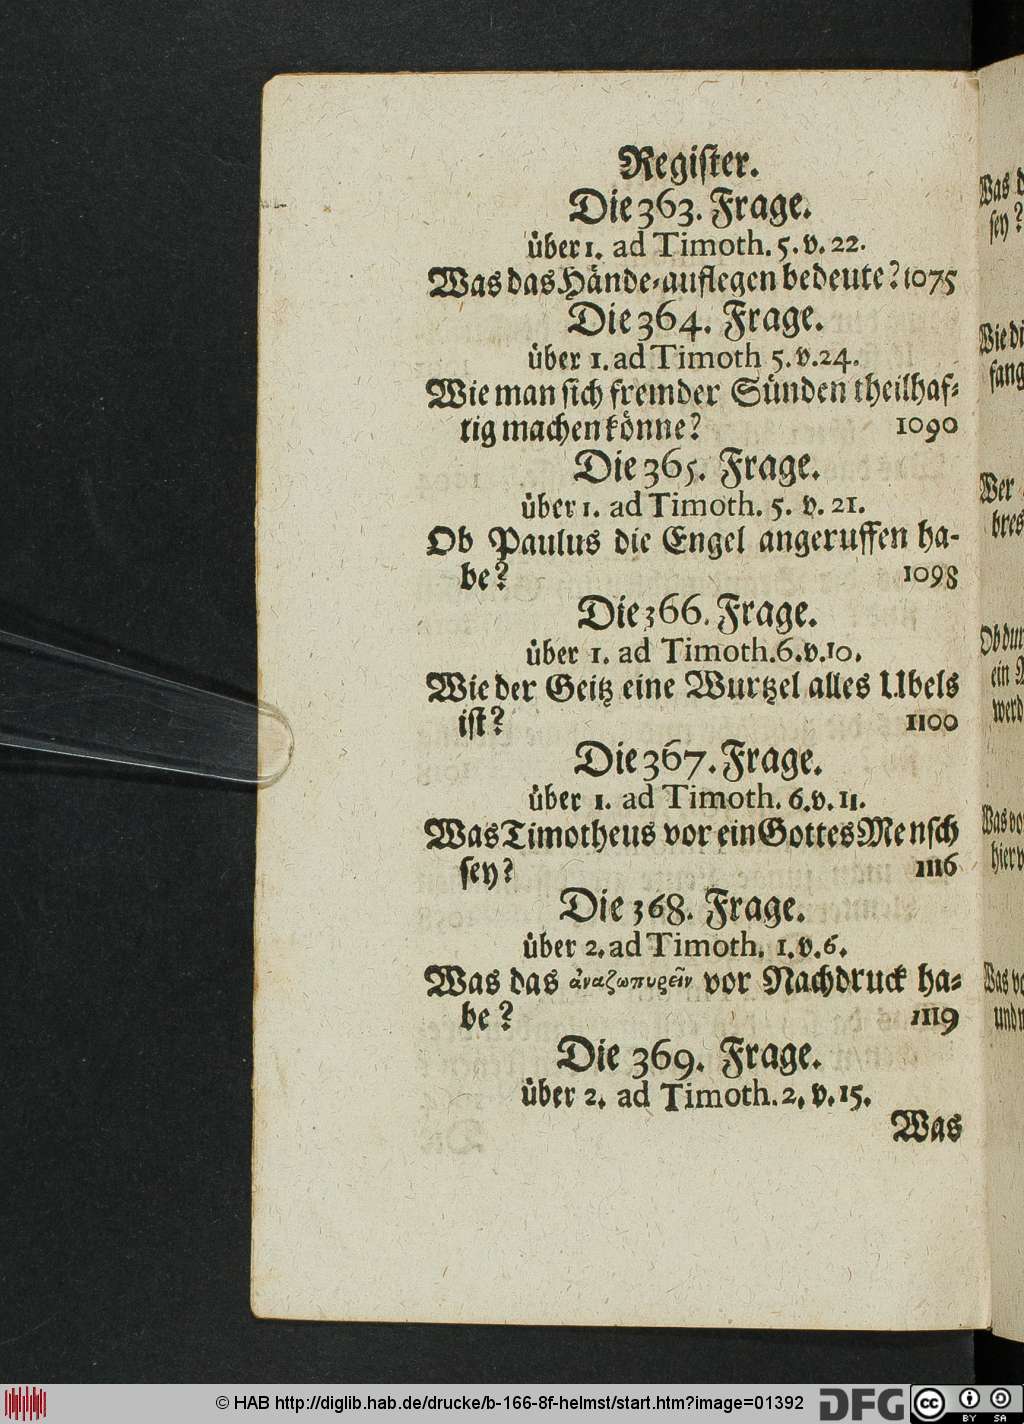 Register.
Die 363. Frage.
über 1. ad Timoth. 5. v. 22.
Was das Hände-auflegen bedeute? 1075
Die 364. Frage.
über 1. ad Timoth 5. v. 24.
Wie man sich fremder Sünden theilhaf-
tig machen könne? 1090
Die 365. Frage.
über 1. ad Timoth. 5. v. 21.
Ob Paulus die Engel angeruffen ha-
be? 1098
Die 366. Frage.
über 1. ad Timoth. 6. v. 10.
Wie der Geitz eine Wurtzel alles Ubels
ist? 1100
Die 367. Frage.
über 1. ad Timoth. 6. v. 11.
Was Timotheus vor ein Gottes Mensch
sey? 1116
Die 368. Frage.
über 2. ad Timoth. 1. v. 6.
Was das ἀναζωπυρεῖν vor Nachdruck ha-
be? 1119
Die 369. Frage.
über 2. ad Timoth. 2. v. 15.
Was
© HAB http://diglib.hab.de/drucke/b-166-8f-helmst/start.htm?image=01392
DFG
cc
BY SA